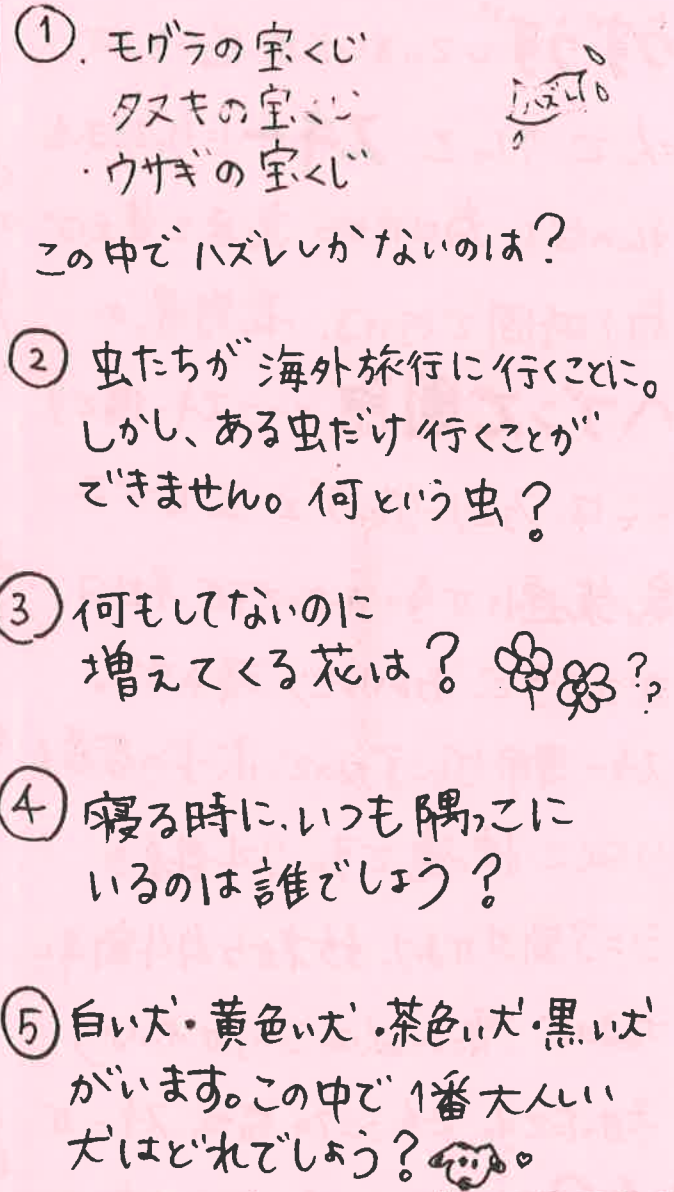 ① ・モグラの宝くじ
タヌキの宝くじ
・ウサギの宝くじ
ハズレ
この中でハズレしかないのは？
② 虫たちが海外旅行に行くことに。
しかし、ある虫だけ行くことが
できません。何という虫？
③ 何もしてないのに
増えてくる花は？
??
④ 寝る時に、いつも隅っこに
いるのは誰でしょう？
⑤ 白い犬・黄色い犬・茶色い犬・黒い犬
がいます。この中で1番大人しい
犬はどれでしょう？